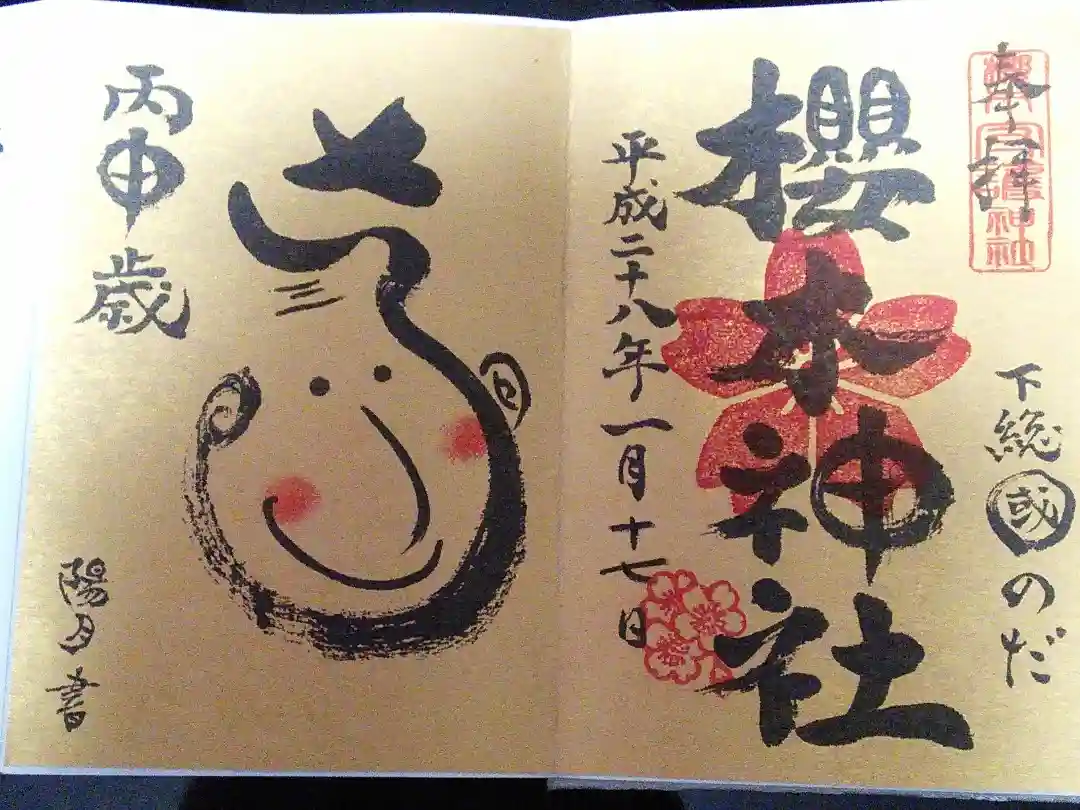 奉拝
下総國のだ
櫻木神社
平成二十八年一月十七日
丙申歳
陽月書